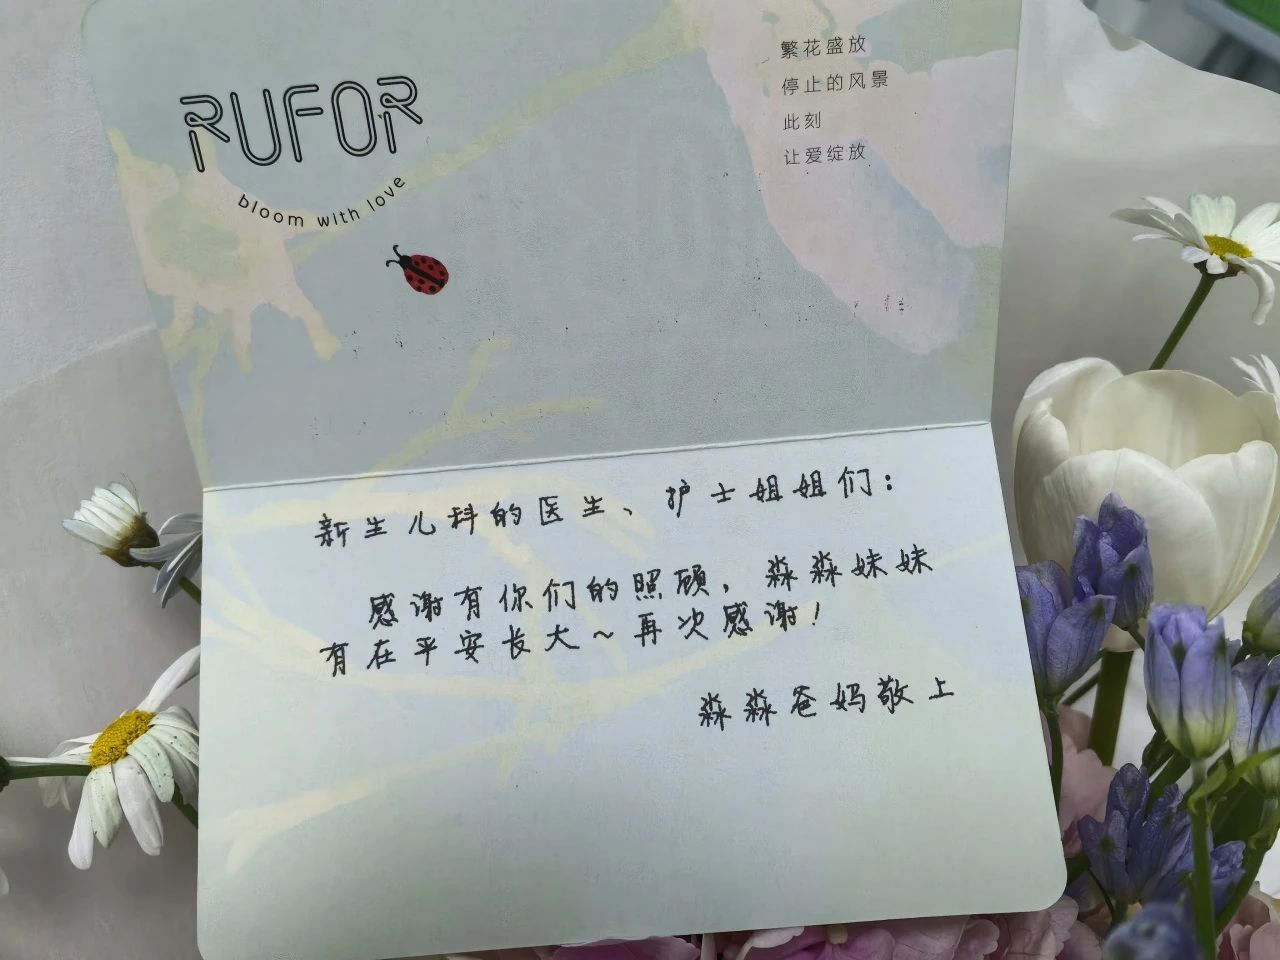 RUFOR
bloom with love
繁花盛放
停止的风景
此刻
让爱绽放
新生儿科的医生、护士姐姐们：
感谢有你们的照顾，淼淼妹妹
有在平安长大～再次感谢！
淼淼爸妈敬上